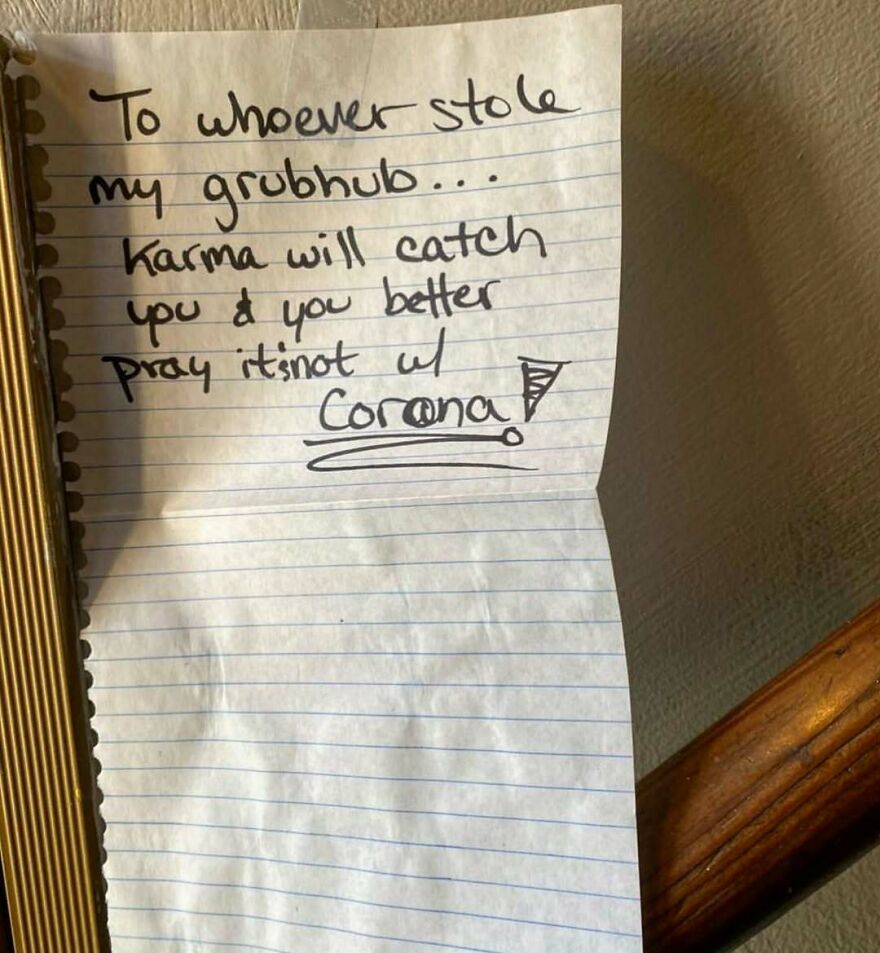 To whoever stole
my grubhub...
Karma will catch
you & you better
pray it's not w/
Corona!